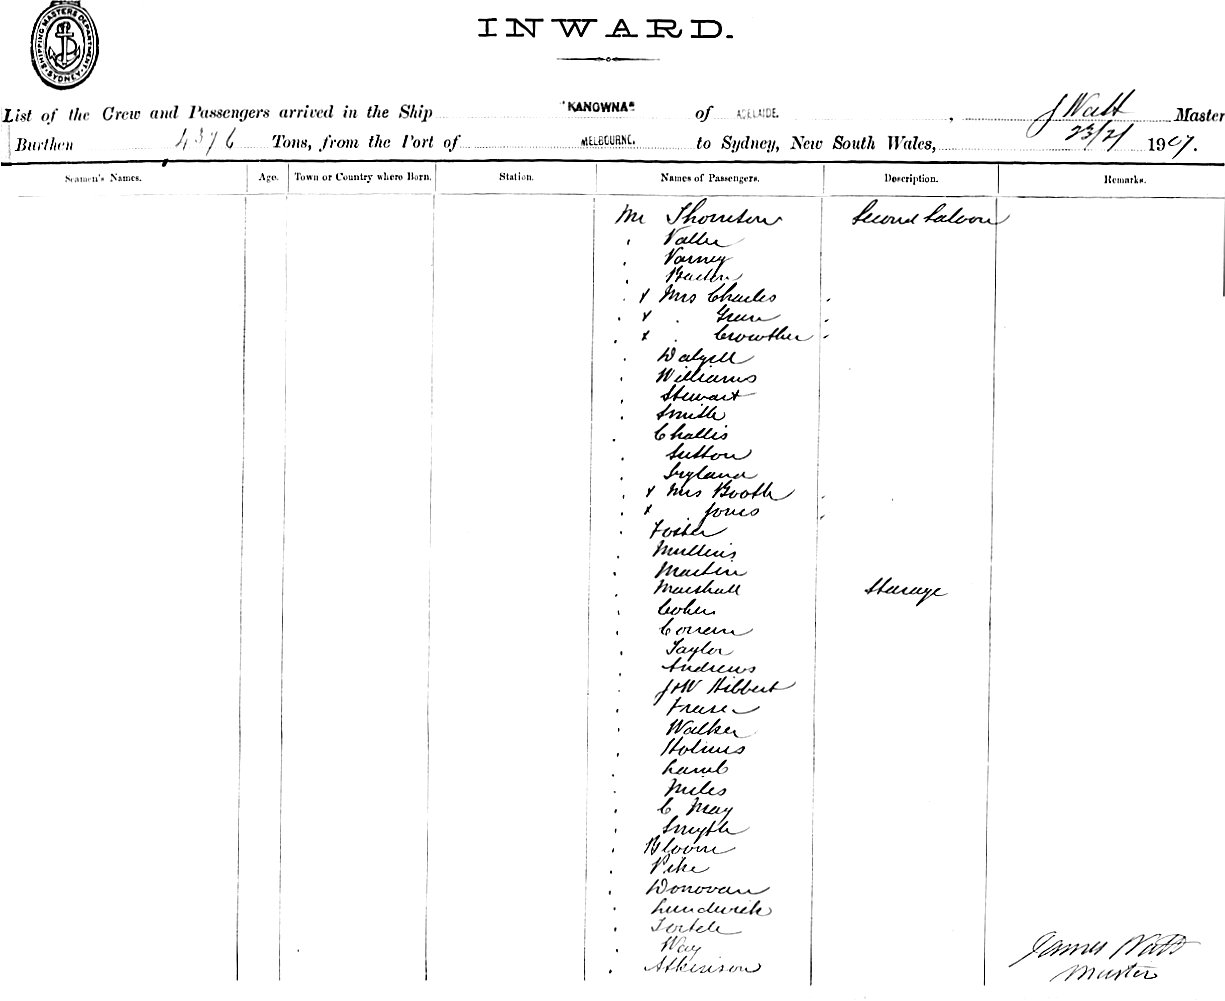 SHIPPING MASTERS DEPARTMENT SYDNEY
INWARD.
List of the Crew and Passengers arrived in the Ship "KANOWNA" of ADELAIDE. , J Watt Master
Burthen 4376 Tons, from the Port of MELBOURNE. to Sydney, New South Wales, 23/2/ 1907.
Seamen's Names. Age. Town or Country where Born. Station. Names of Passengers. Description. Remarks.
Mr Thomson Second Saloon
Varney
x Mrs Charles
x
x Crowther
Dalzell
Williams
Stewart
Smith
Challis
Sutton
x Mrs Booth
x Jones
Foster
Mullins
Martin
Marshall Steerage
Cohen
Taylor
Andrews
J & W Hibbert
Fraser
Walker
Holmes
Lamb
Miles
C May
Smyth
Bloom
Pike
Donovan
Way
Atkinson
James Watt
Master